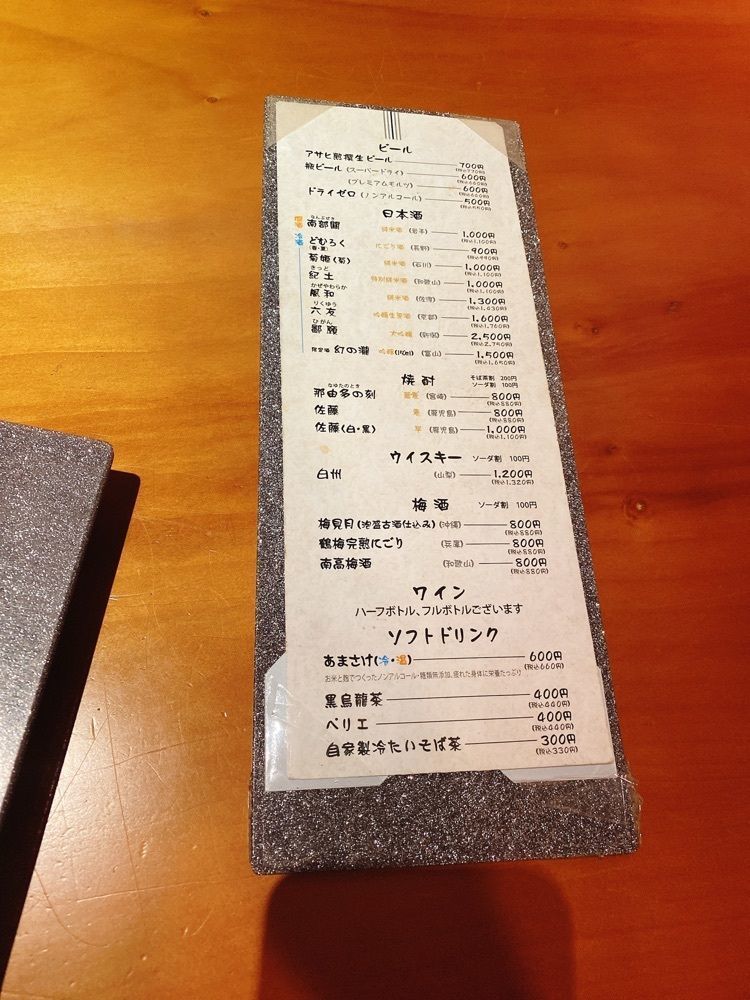 ビール
アサヒ熟撰生ビール 700円
(税込770円)
瓶ビール (スーパードライ) 600円
(税込660円)
(プレミアムモルツ) 600円
(税込660円)
ドライゼロ (ノンアルコール) 500円
(税込550円)
日本酒
なんぶぜき
南部関 純米酒 (岩手) 1,000円
(税込1,100円)
冷酒 どむろく にごり酒 (長野) 900円
(春・夏) (税込990円)
菊姫(菊) 純米酒 (石川) 1,000円
(税込1,100円)
きっど
紀土 特別純米酒 (和歌山) 1,000円
(税込1,100円)
かぜやわらか
風和 純米酒 (佐渡) 1,300円
(税込1,430円)
りくゆう
六友 吟醸生原酒 (京都) 1,600円
(税込1,760円)
ひがん
鄙願 大吟醸 (新潟) 2,500円
(税込2,750円)
限定酒 幻の瀧 吟醸 (富山) 1,500円
(税込1,650円)
焼酎 そば茶割 200円
ソーダ割 100円
なゆたのとき
那由多の刻 蕎麦 (宮崎) 800円
(税込880円)
佐藤 麦 (鹿児島) 800円
(税込880円)
佐藤(白・黒) 芋 (鹿児島) 1,000円
(税込1,100円)
ウイスキー ソーダ割 100円
白州 (山梨) 1,200円
(税込1,320円)
梅酒 ソーダ割 100円
梅見月(泡盛古酒仕込み) (沖縄) 800円
(税込880円)
鶴梅完熟にごり (兵庫) 800円
(税込880円)
南高梅酒 (和歌山) 800円
(税込880円)
ワイン
ハーフボトル、フルボトルございます
ソフトドリンク
あまさけ(冷・温) 600円
(税込660円)
お米と麹でつくったノンアルコール・糖類無添加。疲れた身体に栄養たっぷり
黒烏龍茶 400円
(税込440円)
ペリエ 400円
(税込440円)
自家製冷たいそば茶 300円
(税込330円)